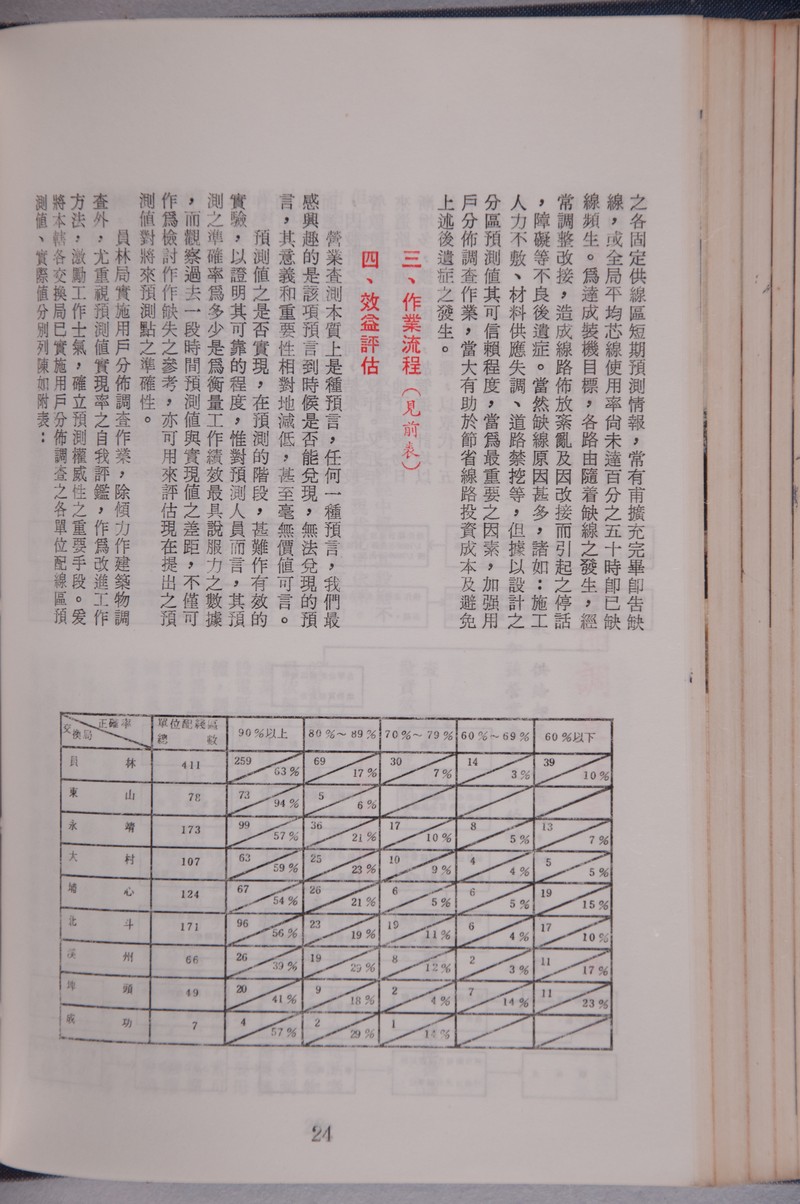 之各固定供線區短期預測情報，常有甫擴充完畢卽告缺
線，或全局平均芯線使用率尙未達百分之五十時卽已缺
線頻生。爲達成裝機目標，各路由隨着缺線之發生，經
常調整改接，造成線路佈放紊亂及因改接而引起之停話
，障礙等不良後遺症。當然缺線原因甚多，諸如：施工
人力不敷、材料供應失調、道路禁挖等，但據以設計之
分區預測値其可信賴程度，當爲最重要之因素，加强用
戶分佈調查作業，當大有助於節省線路投資成本及避免
上述後遺症之發生。
三、作業流程（見前表）
四、效益評估
營業查測本質上是種預言，任何一種預言，我們最
感興趣的是該項預言到時候是否能兌現，無法兌現的預
言，其意義和重要性相對地減低，甚至毫無價値可言。
預測値之是否實現，在預測的階段，甚難作有效的
實驗，以證明其可靠的程度，惟對預測人員而言，其預
測之準確率爲多少是爲衡量工作績效最具說服力之數據
，而觀察過去一段時間預測値與實現値之差距，不僅可
作爲檢討作作缺失之參考，亦可用來評估現在提出之預
測値對將來預測點之準確性。
員林局實施用戶分佈調查作業，除傾力作建築物調
查外，尤重視預測値實現率之自我評鑑，作爲改進工作
方法，激勵工作士氣，確立預測權威性之重要手段。爰
將本轄各交換局已實施用戶分佈調查之各單位配線區預
測値、實際値分別列陳如附表：
交換局 正確率 單位配線區總數 90％以上 80％～89％ 70％～79％ 60％～69％ 60％以下
員林 411 259 63％ 69 17％ 30 7％ 14 3％ 39 10％
東山 78 73 94％ 5 6％
永靖 173 99 57％ 36 21％ 17 10％ 8 5％ 13 7％
大村 107 63 59％ 25 23％ 10 9％ 4 4％ 5 5％
埔心 124 67 54％ 26 21％ 6 5％ 6 5％ 19 15％
北斗 171 96 56％ 23 19％ 19 11％ 6 4％ 17 10％
溪州 66 26 39％ 19 29％ 8 12％ 2 3％ 11 17％
埤頭 49 20 41％ 9 18％ 2 4％ 7 14％ 11 23％
成功 7 4 57％ 2 29％ 1 14％
24